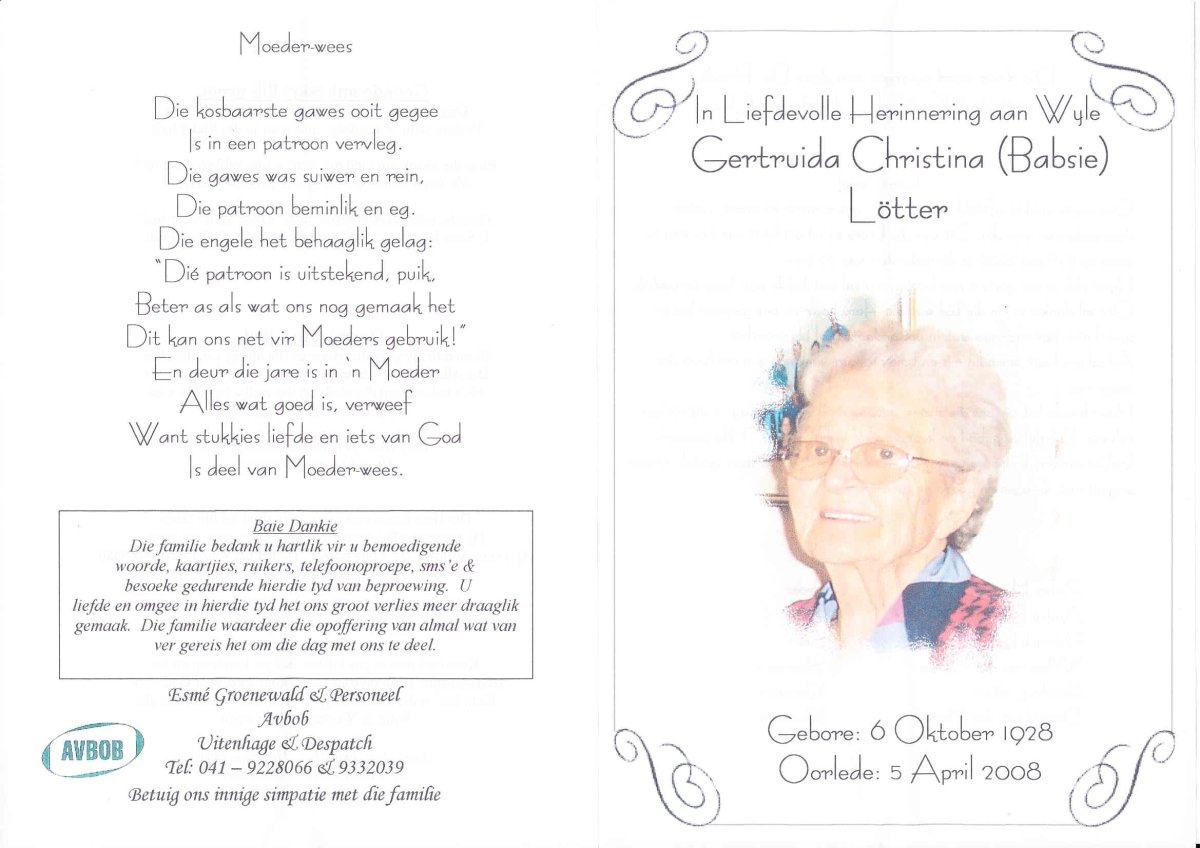 Moeder-wees
Die kosbaarste gawes ooit gegee
Is in een patroon vervleg.
Die gawes was suiwer en rein,
Die patroon beminlik en eg.
Die engele het behaaglik gelag:
“Dié patroon is uitstekend, puik,
Beter as als wat ons nog gemaak het
Dit kan ons net vir Moeders gebruik!”
En deur die jare is in `n Moeder
Alles wat goed is, verweef
Want stukkies liefde en iets van God
Is deel van Moeder-wees.
Baie Dankie
Die familie bedank u hartlik vir u bemoedigende
woorde, kaartjies, ruikers, telefoonoproepe, sms’e &
besoeke gedurende hierdie tyd van beproewing. U
liefde en omgee in hierdie tyd het ons groot verlies meer draaglik
gemaak. Die familie waardeer die opoffering van almal wat van
ver gereis het om die dag met ons te deel.
Esmé Groenewald & Personeel
Avbob
Uitenhage & Despatch
Tel: 041 – 9228066 & 9332039
Betuig ons innige simpatie met die familie
AVBOB
In Liefdevolle Herinnering aan Wyle
Gertruida Christina (Babsie)
Lötter
Gebore: 6 Oktober 1928
Oorlede: 5 April 2008